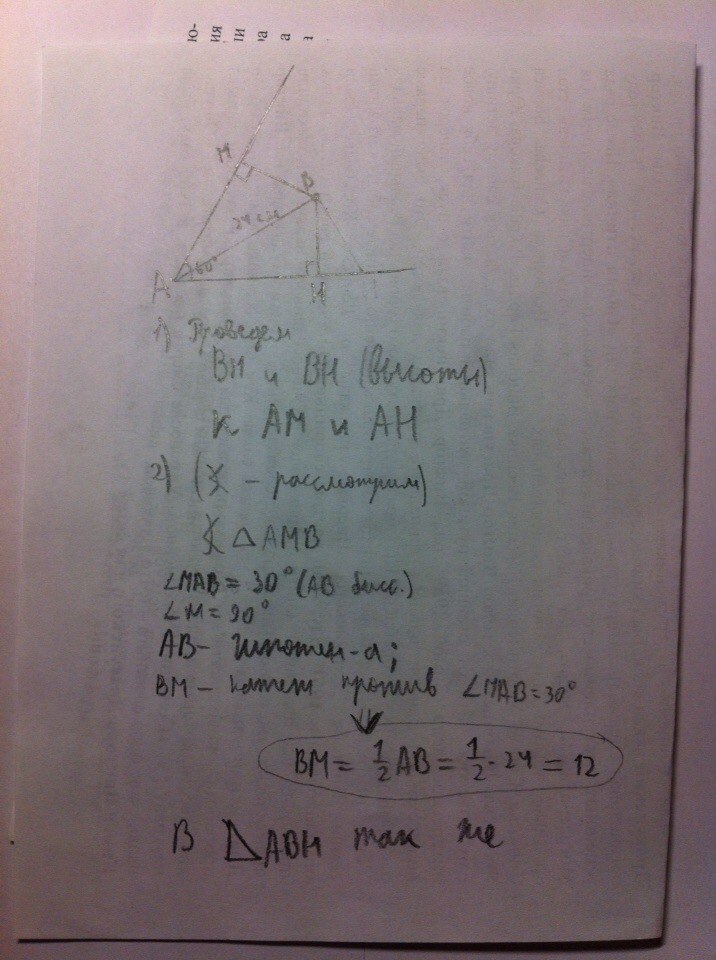 ю-
ия
ли
ра
а
а
M
B
24 см
60°
A
H
1) Проведем
BM и BH (высоты)
к AM и AH
2) ( - рассмотрим)
△AMB
∠MAB = 30° (AB бисс.)
∠M = 90°
AB - гипотен-а;
BM - катет против ∠MAB = 30°
BM = 1/2 AB = 1/2 · 24 = 12
В △ABH так же